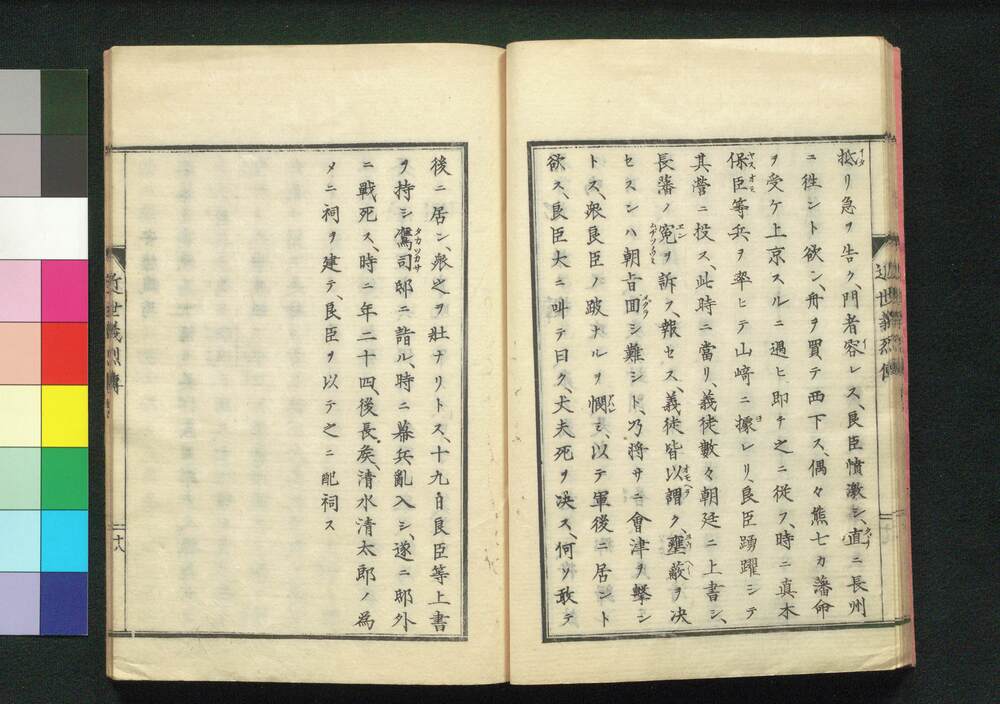 抵リ急ヲ告ク、門者容レス、良臣憤激シ、直ニ長州
ニ徃ント欲シ、舟ヲ買テ西下ス、偶々熊七カ藩命
ヲ受ケ上京スルニ遇ヒ即チ之ニ從フ、時ニ真木
保臣等兵ヲ率ヒテ山﨑ニ據レリ、良臣踴躍シテ
其營ニ投ス、此時ニ當リ、義徒數々朝廷ニ上書シ、
長藩ノ冤ヲ訴フ、報セス、義徒皆以謂ク、壅蔽ヲ决
セスンハ朝旨回シ難シト、乃將サニ會津ヲ擊ン
トス、衆良臣ノ跛ナルヲ憫ミ、以テ軍後ニ居ント
欲ス、良臣大ニ叫テ曰ク、大夫死ヲ决ス、何ソ敢テ
後ニ居ン、衆之ヲ壯ナリトス、十九日良臣等上書
ヲ持シ鷹司邸ニ詣ル、時ニ幕兵亂入シ、遂ニ邸外
ニ戰死ス、時ニ年二十四、後長矦、清水清太郎ノ為
メニ祠ヲ建テ、良臣ヲ以テ之ニ配祠ス
近世義烈傳
十八